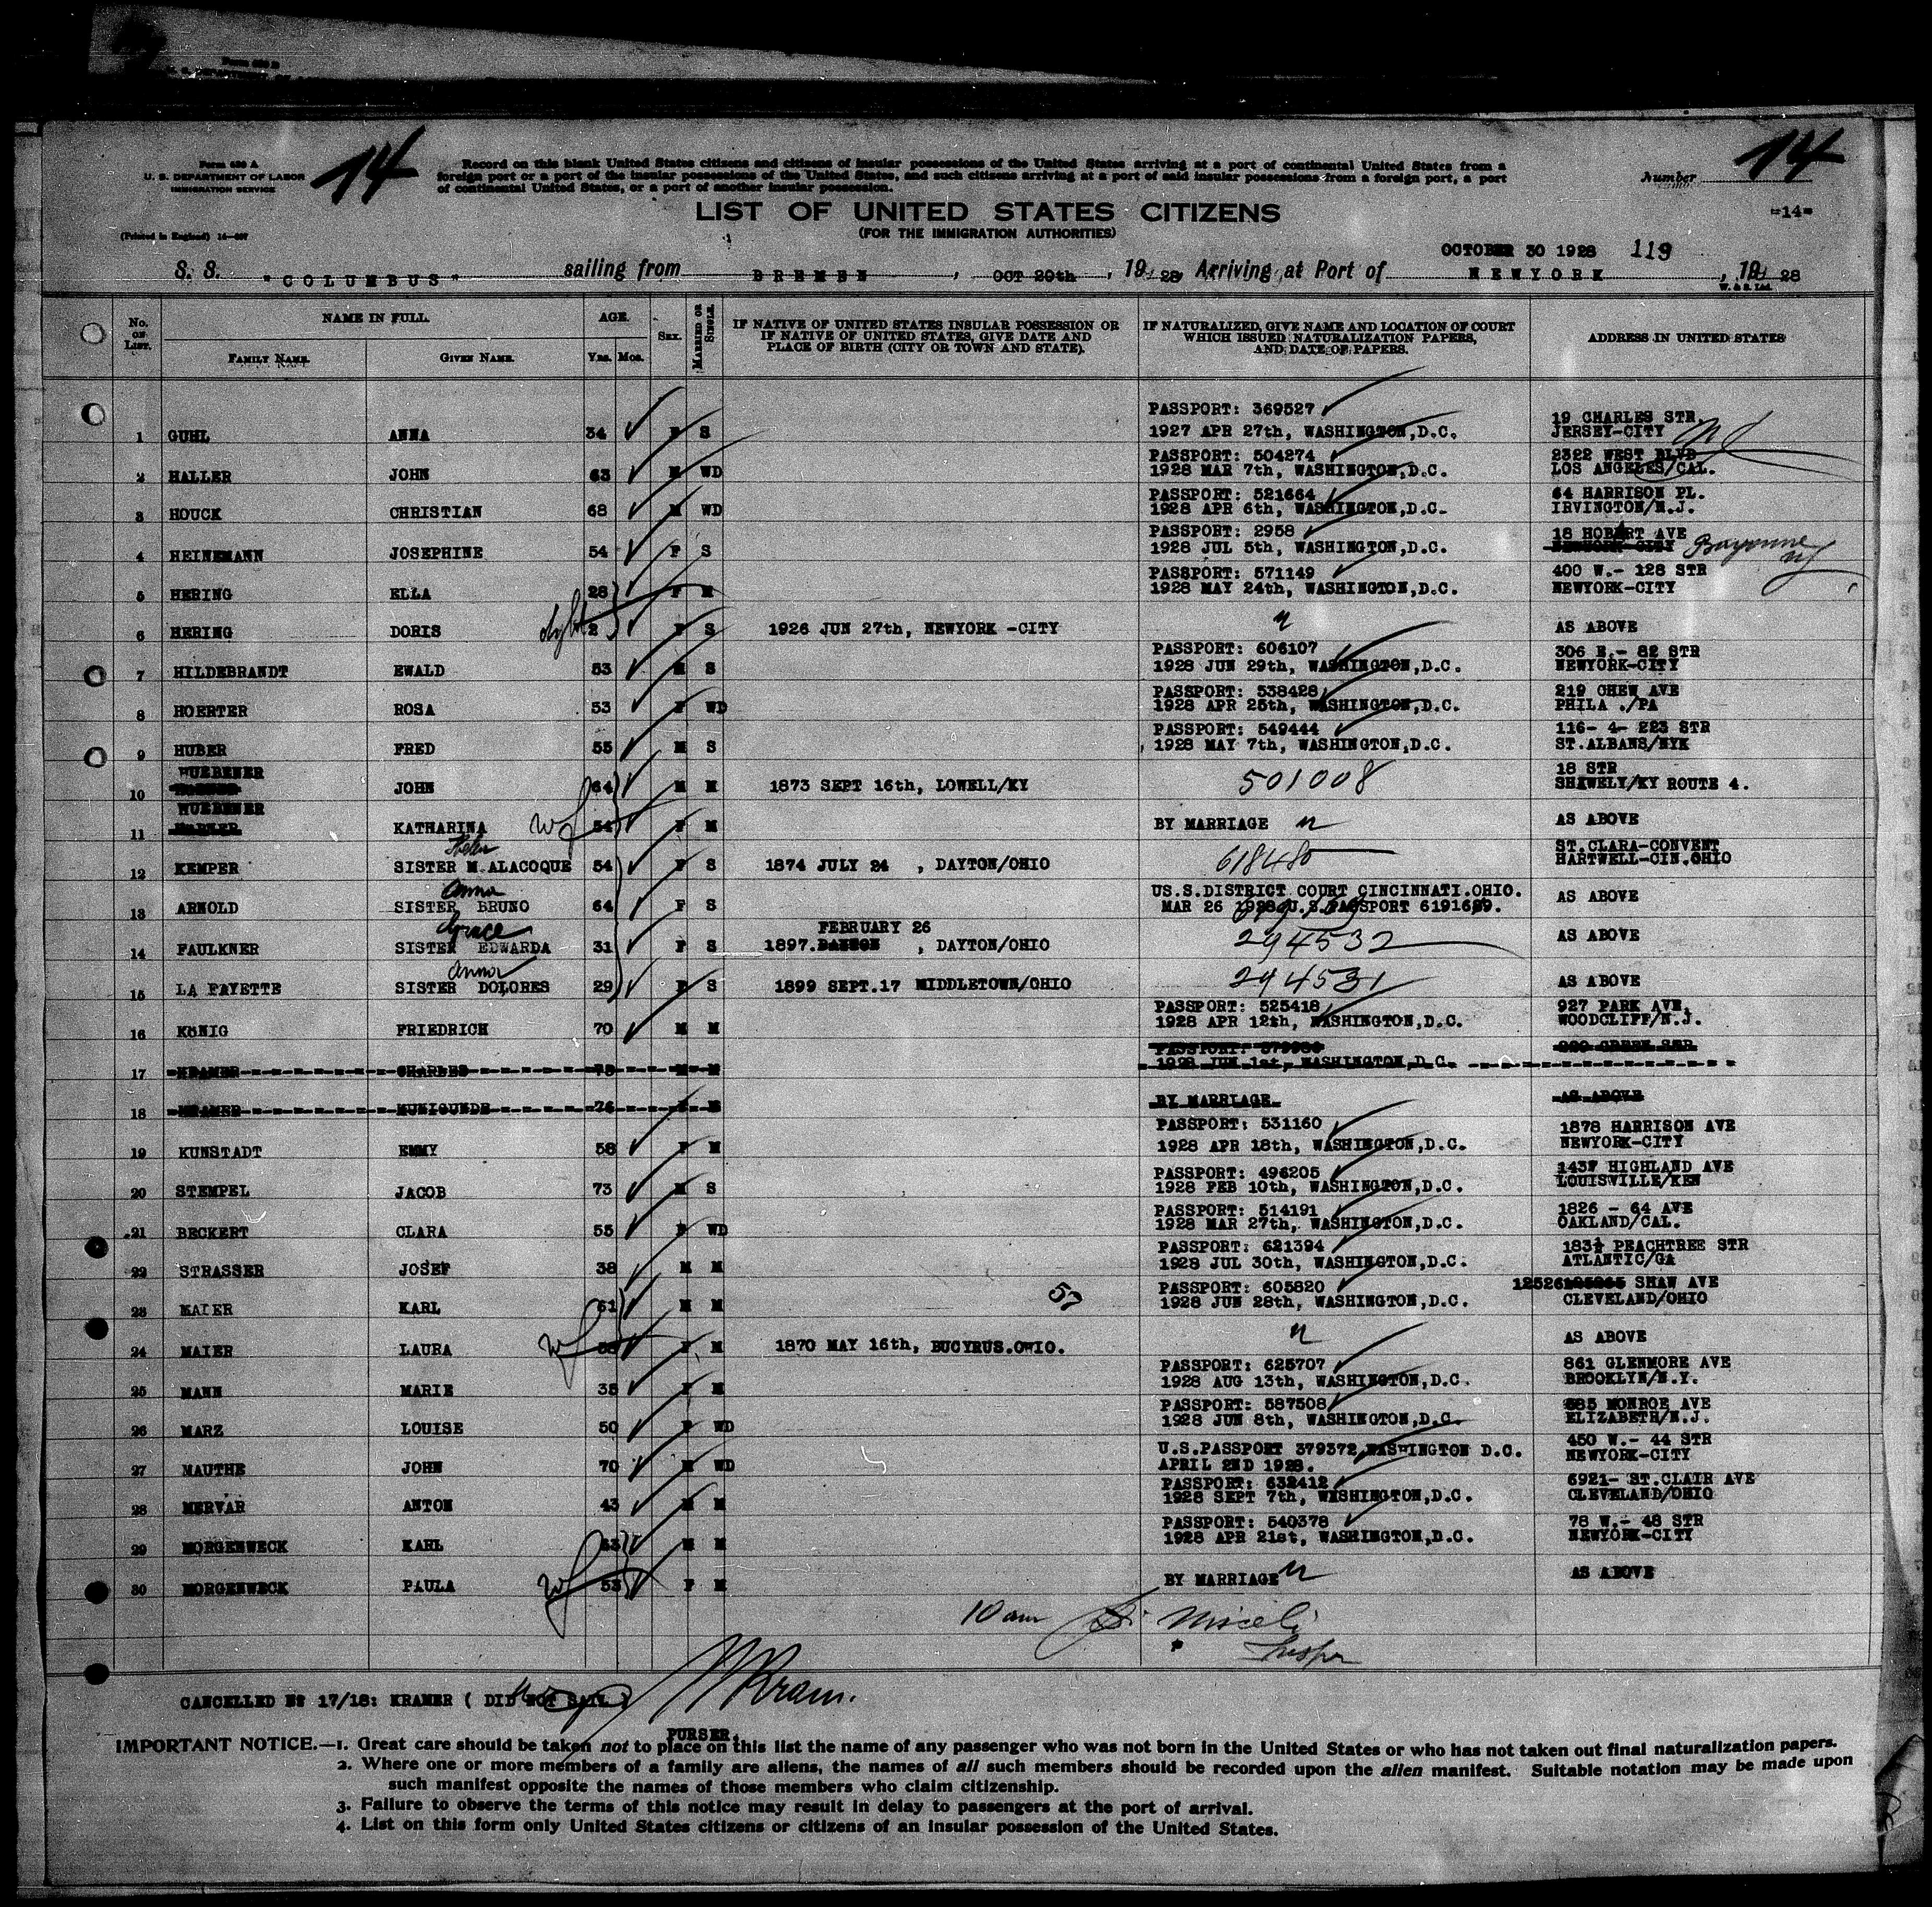 Form 630 A
U. S. DEPARTMENT OF LABOR
IMMIGRATION SERVICE
14
Record on this blank United States citizens and citizens of insular possessions of the United States arriving at a port of continental United States from a
foreign port or a port of the insular possessions of the United States, and such citizens arriving at a port of said insular possessions from a foreign port, a port
of continental United States, or a port of another insular possession.
14
Number
LIST OF UNITED STATES CITIZENS
-14-
(FOR THE IMMIGRATION AUTHORITIES)
(Printed in England)
OCTOBER 30 1928 119
S. S. "COLUMBUS" sailing from BREMEN, OCT 20th, 1928, Arriving at Port of NEWYORK, 1928
W. & S. Ltd.
No. ON LIST. NAME IN FULL. FAMILY NAME. GIVEN NAME. AGE. Yrs. Mos. SEX. MARRIED OR SINGLE.
IF NATIVE OF UNITED STATES INSULAR POSSESSION OR
IF NATIVE OF UNITED STATES, GIVE DATE AND
PLACE OF BIRTH (CITY OR TOWN AND STATE).
IF NATURALIZED, GIVE NAME AND LOCATION OF COURT
WHICH ISSUED NATURALIZATION PAPERS,
AND DATE OF PAPERS.
ADDRESS IN UNITED STATES
PASSPORT: 369527 19 CHARLES STR
1 GUHL ANNA 34 F S 1927 APR 27th, WASHINGTON,D.C. JERSEY-CITY NJ
PASSPORT: 504274 2322 WEST BLVD
2 HALLER JOHN 63 M WD 1928 MAR 7th, WASHINGTON,D.C. LOS ANGELES/CAL.
PASSPORT: 521664 64 HARRISON PL.
3 HOUCK CHRISTIAN 68 M WD 1928 APR 6th, WASHINGTON,D.C. IRVINGTON/N.J.
PASSPORT: 2958 18 HOBART AVE
4 HEINEMANN JOSEPHINE 54 F S 1928 JUL 5th, WASHINGTON,D.C. NEWYORK-CITY Bayonne NJ
PASSPORT: 571149 400 W.- 128 STR
5 HERING ELLA 28 F M 1928 MAY 24th, WASHINGTON,D.C. NEWYORK-CITY
6 HERING DORIS 2 F S 1926 JUN 27th, NEWYORK -CITY " AS ABOVE
PASSPORT: 606107 306 E.- 82 STR
7 HILDEBRANDT EWALD 53 M S 1928 JUN 29th, WASHINGTON,D.C. NEWYORK-CITY
PASSPORT: 538428 219 CHEW AVE
8 HOERTER ROSA 53 F WD 1928 APR 25th, WASHINGTON,D.C. PHILA ./PA
PASSPORT: 549444 116- 4- 223 STR
9 HUBER FRED 55 M S 1928 MAY 7th, WASHINGTON,D.C. ST.ALBANS/NYK
WUEBENER 18 STR
10 JOHN 54 M M 1873 SEPT 16th, LOWELL/KY 501008 SHIWELY/KY ROUTE 4.
WUEBENER
11 KATHARINA wf 54 F M BY MARRIAGE " AS ABOVE
Helen ST.CLARA-CONVENT
12 KEMPER SISTER M.ALACOQUE 54 F S 1874 JULY 24 , DAYTON/OHIO 618480 HARTWELL-CIN.OHIO
Anna US.S.DISTRICT COURT CINCINNATI.OHIO.
13 ARNOLD SISTER BRUNO 64 F S MAR 26 1928 U.S.PASSPORT 6191689. AS ABOVE
Grace FEBRUARY 26
14 FAULKNER SISTER EDWARDA 31 F S 1897. , DAYTON/OHIO 294532 AS ABOVE
Anna
15 LA FAYETTE SISTER DOLORES 29 F S 1899 SEPT.17 MIDDLETOWN/OHIO 294531 AS ABOVE
PASSPORT: 525418 927 PARK AVE,
16 KÖNIG FRIEDRICH 70 M M 1928 APR 12th, WASHINGTON,D.C. WOODCLIFF/N.J.
PASSPORT: 260 GREEN STR
17 KRAMER CHARLES 73 M M 1928 JUN 1st, WASHINGTON,D.C.
18 KRAMER KUNIGUNDE 76 F M BY MARRIAGE. AS ABOVE
PASSPORT: 531160 1878 HARRISON AVE
19 KUNSTADT EMMY 58 F M 1928 APR 18th, WASHINGTON,D.C. NEWYORK-CITY
PASSPORT: 496205 1437 HIGHLAND AVE
20 STEMPEL JACOB 73 M S 1928 FEB 10th, WASHINGTON,D.C. LOUISVILLE/KEN
PASSPORT: 514191 1826 - 64 AVE
21 BECKERT CLARA 55 F WD 1928 MAR 27th, WASHINGTON,D.C. OAKLAND/CAL.
PASSPORT: 621394 183½ PEACHTREE STR
22 STRASSER JOSEF 38 M M 1928 JUL 30th, WASHINGTON,D.C. ATLANTIC/GA
PASSPORT: 605820 12526 SHAW AVE
23 MAIER KARL 61 M M 57 1928 JUN 28th, WASHINGTON,D.C. CLEVELAND/OHIO
24 MAIER LAURA wf 58 F M 1870 MAY 16th, BUCYRUS.OHIO. " AS ABOVE
PASSPORT: 625707 861 GLENMORE AVE
25 MANN MARIE 38 F M 1928 AUG 13th, WASHINGTON,D.C. BROOKLYN/N.Y.
PASSPORT: 587508 585 MONROE AVE
26 MARZ LOUISE 50 F WD 1928 JUN 8th, WASHINGTON,D.C. ELIZABETH/N.J.
U.S.PASSPORT 379372,WASHINGTON D.C. 450 W.- 44 STR
27 MAUTHE JOHN 70 M WD APRIL 2ND 1928. NEWYORK-CITY
PASSPORT: 632412 6921- ST.CLAIR AVE
28 MERVAR ANTON 43 M M 1928 SEPT 7th, WASHINGTON,D.C. CLEVELAND/OHIO
PASSPORT: 540378 78 W.- 48 STR
29 MORGENWECK KARL M M 1928 APR 21st, WASHINGTON,D.C. NEWYORK-CITY
30 MORGENWECK PAULA wf 53 F M BY MARRIAGE " AS ABOVE
10 am Miceli
Inspr
CANCELLED Nº 17/18: KRAMER ( DID NOT SAIL )
PURSER.
IMPORTANT NOTICE.—1. Great care should be taken not to place on this list the name of any passenger who was not born in the United States or who has not taken out final naturalization papers.
2. Where one or more members of a family are aliens, the names of all such members should be recorded upon the alien manifest. Suitable notation may be made upon
such manifest opposite the names of those members who claim citizenship.
3. Failure to observe the terms of this notice may result in delay to passengers at the port of arrival.
4. List on this form only United States citizens or citizens of an insular possession of the United States.